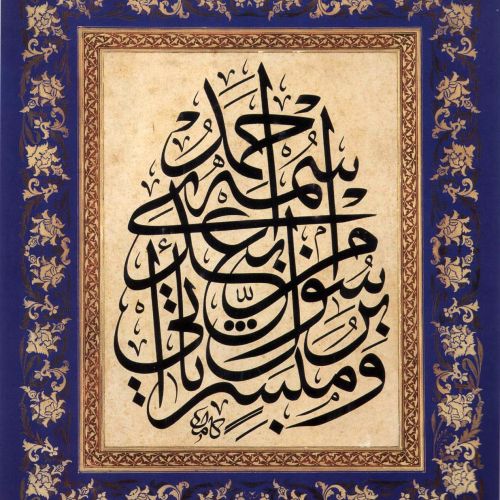 ومبشرا برسول ياتي من بعدي اسمه احمد
كامل